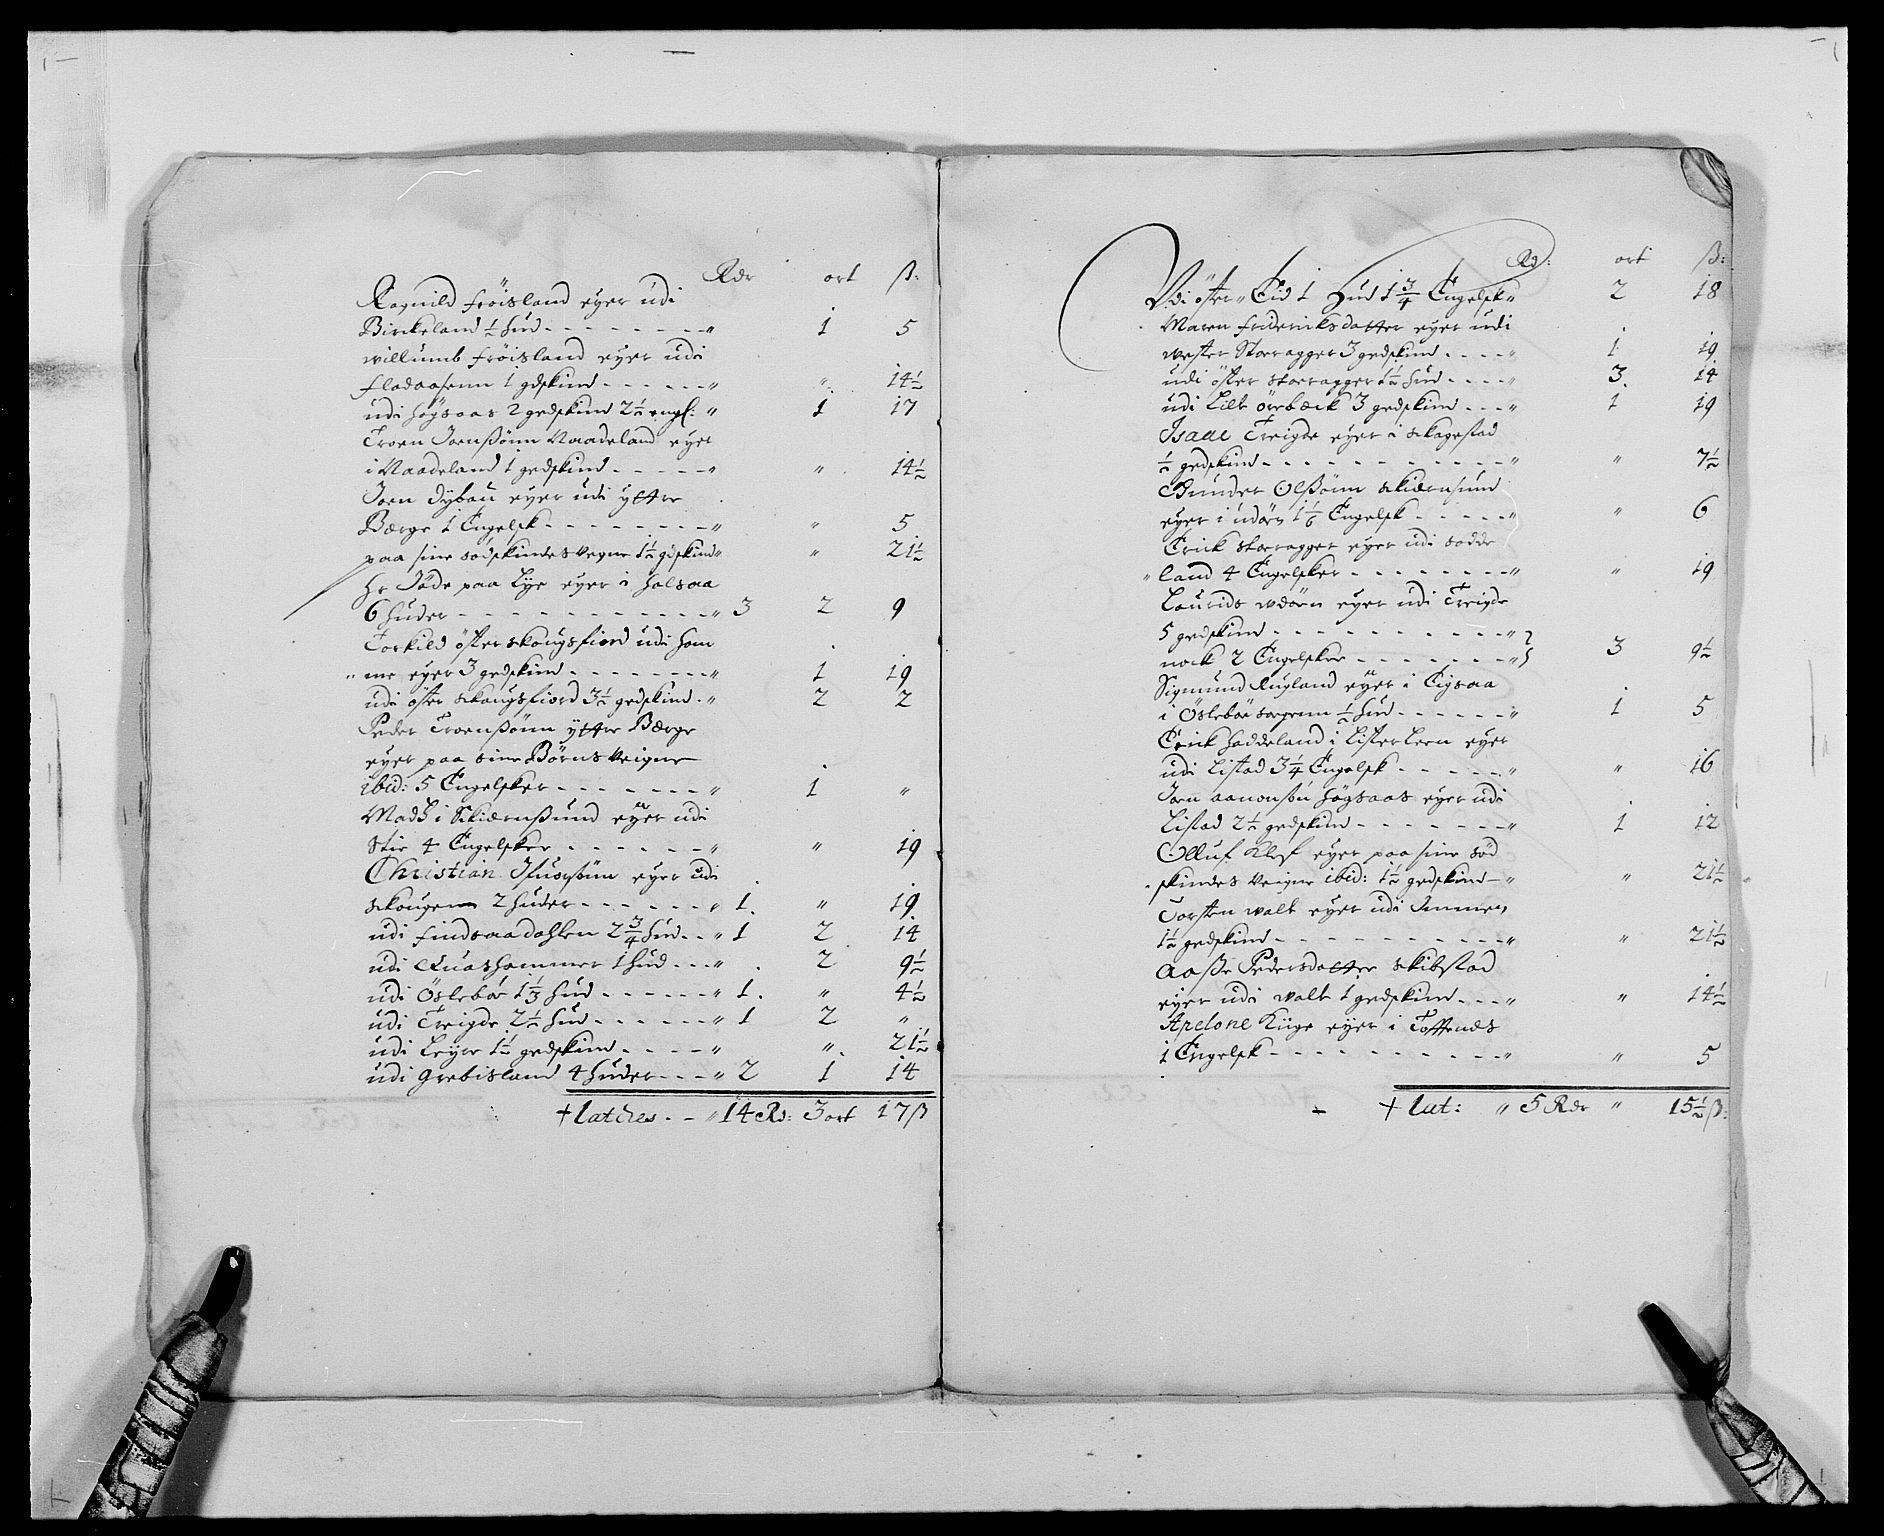 Rdr ort ß:
Ragnild Fröisland eyer udi
Birckeland ½ hud - - - - - - - " 1 5
willumb Fröisland eyer udi
Fladaasenn 1 gdskind - - - - - - " " 14½
udi Høgsaas 2 gedskind 2½ engl: " 1 17
Troen Joenßönn Vaadeland eyer
i Vaadeland 1 gedskind - - - - - " " 14½
Joen Dybau eyer udi yttre
Berge 1 Engelsk - - - - - - - - " " 5
paa sine Södskindes vegne 1½ gdskind " " 21½
Hr Jöde paa Lye eyer i Holsaa
6 huder - - - - - - - - - - - - " 3 2 9
Torkild öster skougsfiord udi Hom
" me eyer 3 gedskind - - - - - - - " 1 19
udi öster skougsfiord 3½ gedskind - " 2 2
Peder Troenßönn yttre Berge
eyer paa sine Börns Veigne
ibid: 5 Engelsker - - - - - - - " 1 "
Madtz i Skiernßund eyer udi
Stie 4 Engelsker - - - - - - " " 19
Christian Ifuersönn eyer udi
skougen 2 huder - - - - - - " 1 " 19
udi Findsaadahlen 2¾ hud - - " 1 2 14
udi Quashammer 1 hud - - - " 2 9½
udi Ösleböe 1⅓ hud - - - - - - " 1 " 4½
udi Treigde 2½ hud - - - - - - " 1 2 "
udi Leyre 1½ gedskind - - - - " " 21½
udi Grebisland 4 huder - - - " 2 1 14
+ Latches - - " 14 Rd: 3 ort 17 ß
Rd: ort ß:
Vdi öster Eid 1 Hud 1¾ Engelsk " 2 18
Maren Frideriksdatter eyer udi
wester Storagger 3 gedskind - - - - " 1 19
udi öster storagger 1½ hud - - - - " 3 14
udi Lille örebeck 3 gedskind - - - " 1 19
Isaac Treigde eyer i skagestad
½ gedskind - - - - - - - - - - - " " 7½
Gunder Olßönn skiernsund
eyer i udörn 1⅙ Engelsk - - - - - " " 6
Erick storagger eyer udi Sodde
" land 4 Engelsker - - - - - - - " " 19
Laurids vdörn eyer udi Treigde
5 gedskind - - - - - - - - - - "
nock 2 Engelsker - - - - - - - " 3 9½
Sigmund Rugland eyer i Eigsaa
i Ösleböe sognn ½ hud - - - - - - " 1 5
Erick Haddeland i Listerleen eyer
udi Listad 3¼ Engelsk - - - - - " " 16
Joen Aanonsön Høgsaas eyer udi
Listad 2½ gedskind - - - - - - - " 1 12
Olluf Klef eyer paa sine Söd
skindes veigne ibid: 1½ gedskind - " " 21½
Torsten walle eyer udi Immen
1½ gedskind - - - - - - - - - - " " 21½
Aaße Pedersdatter Skibstad
eyer udi walle 1 gedskind - - - " " 14½
Apelone Küge eyer i Toftenes
1 Engelsk - - - - - - - - - - " " 5
+ Lat: " 5 Rdr " 15½ ß: